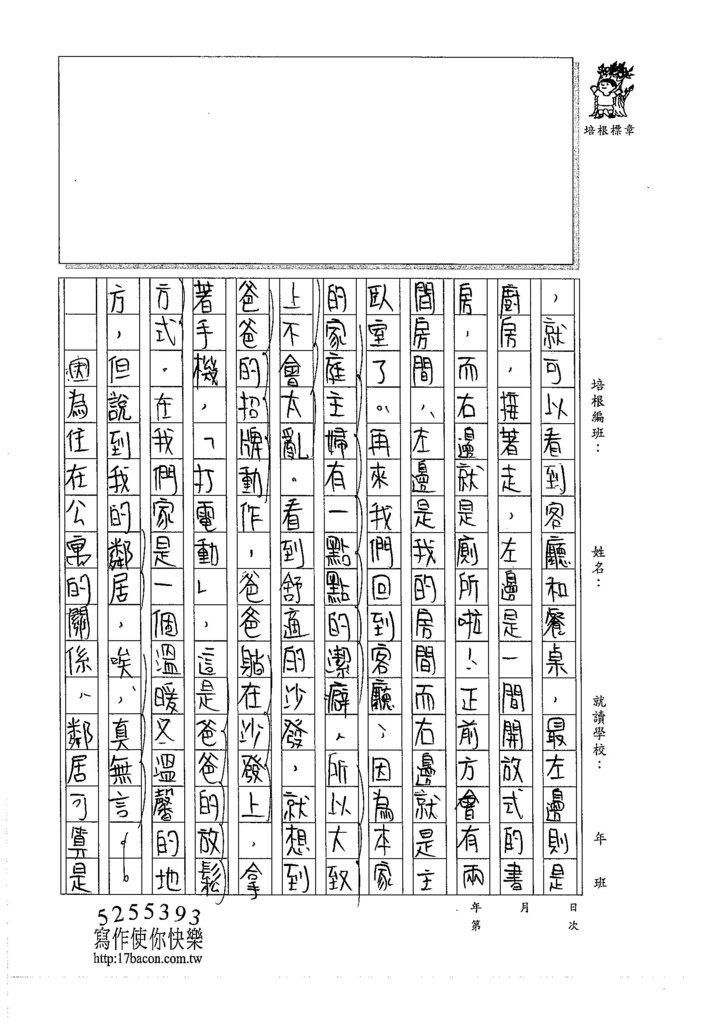 培根標章
培根編班：　姓名：　就讀學校：　年　班
，就可以看到客廳和餐桌，最左邊則是
廚房，接著走，左邊是一間開放式的書
房，而右邊就是廁所啦！正前方會有兩
間房間，左邊是我的房間而右邊就是主
臥室了。再來我們回到客廳，因為本家
的家庭主婦有一點點的潔癖，所以大致
上不會太亂。看到舒適的沙發，就想到
爸爸的招牌動作，爸爸躺在沙發上，拿
著手機，「打電動」，這是爸爸的放鬆
方式。在我們家是一個溫暖冬溫馨的地
方，但說到我的鄰居，唉，真無言……。
因為住在公寓的關係，鄰居可算是
年　月　日
第　次
5255393
寫作使你快樂
http:17bacon.com.tw